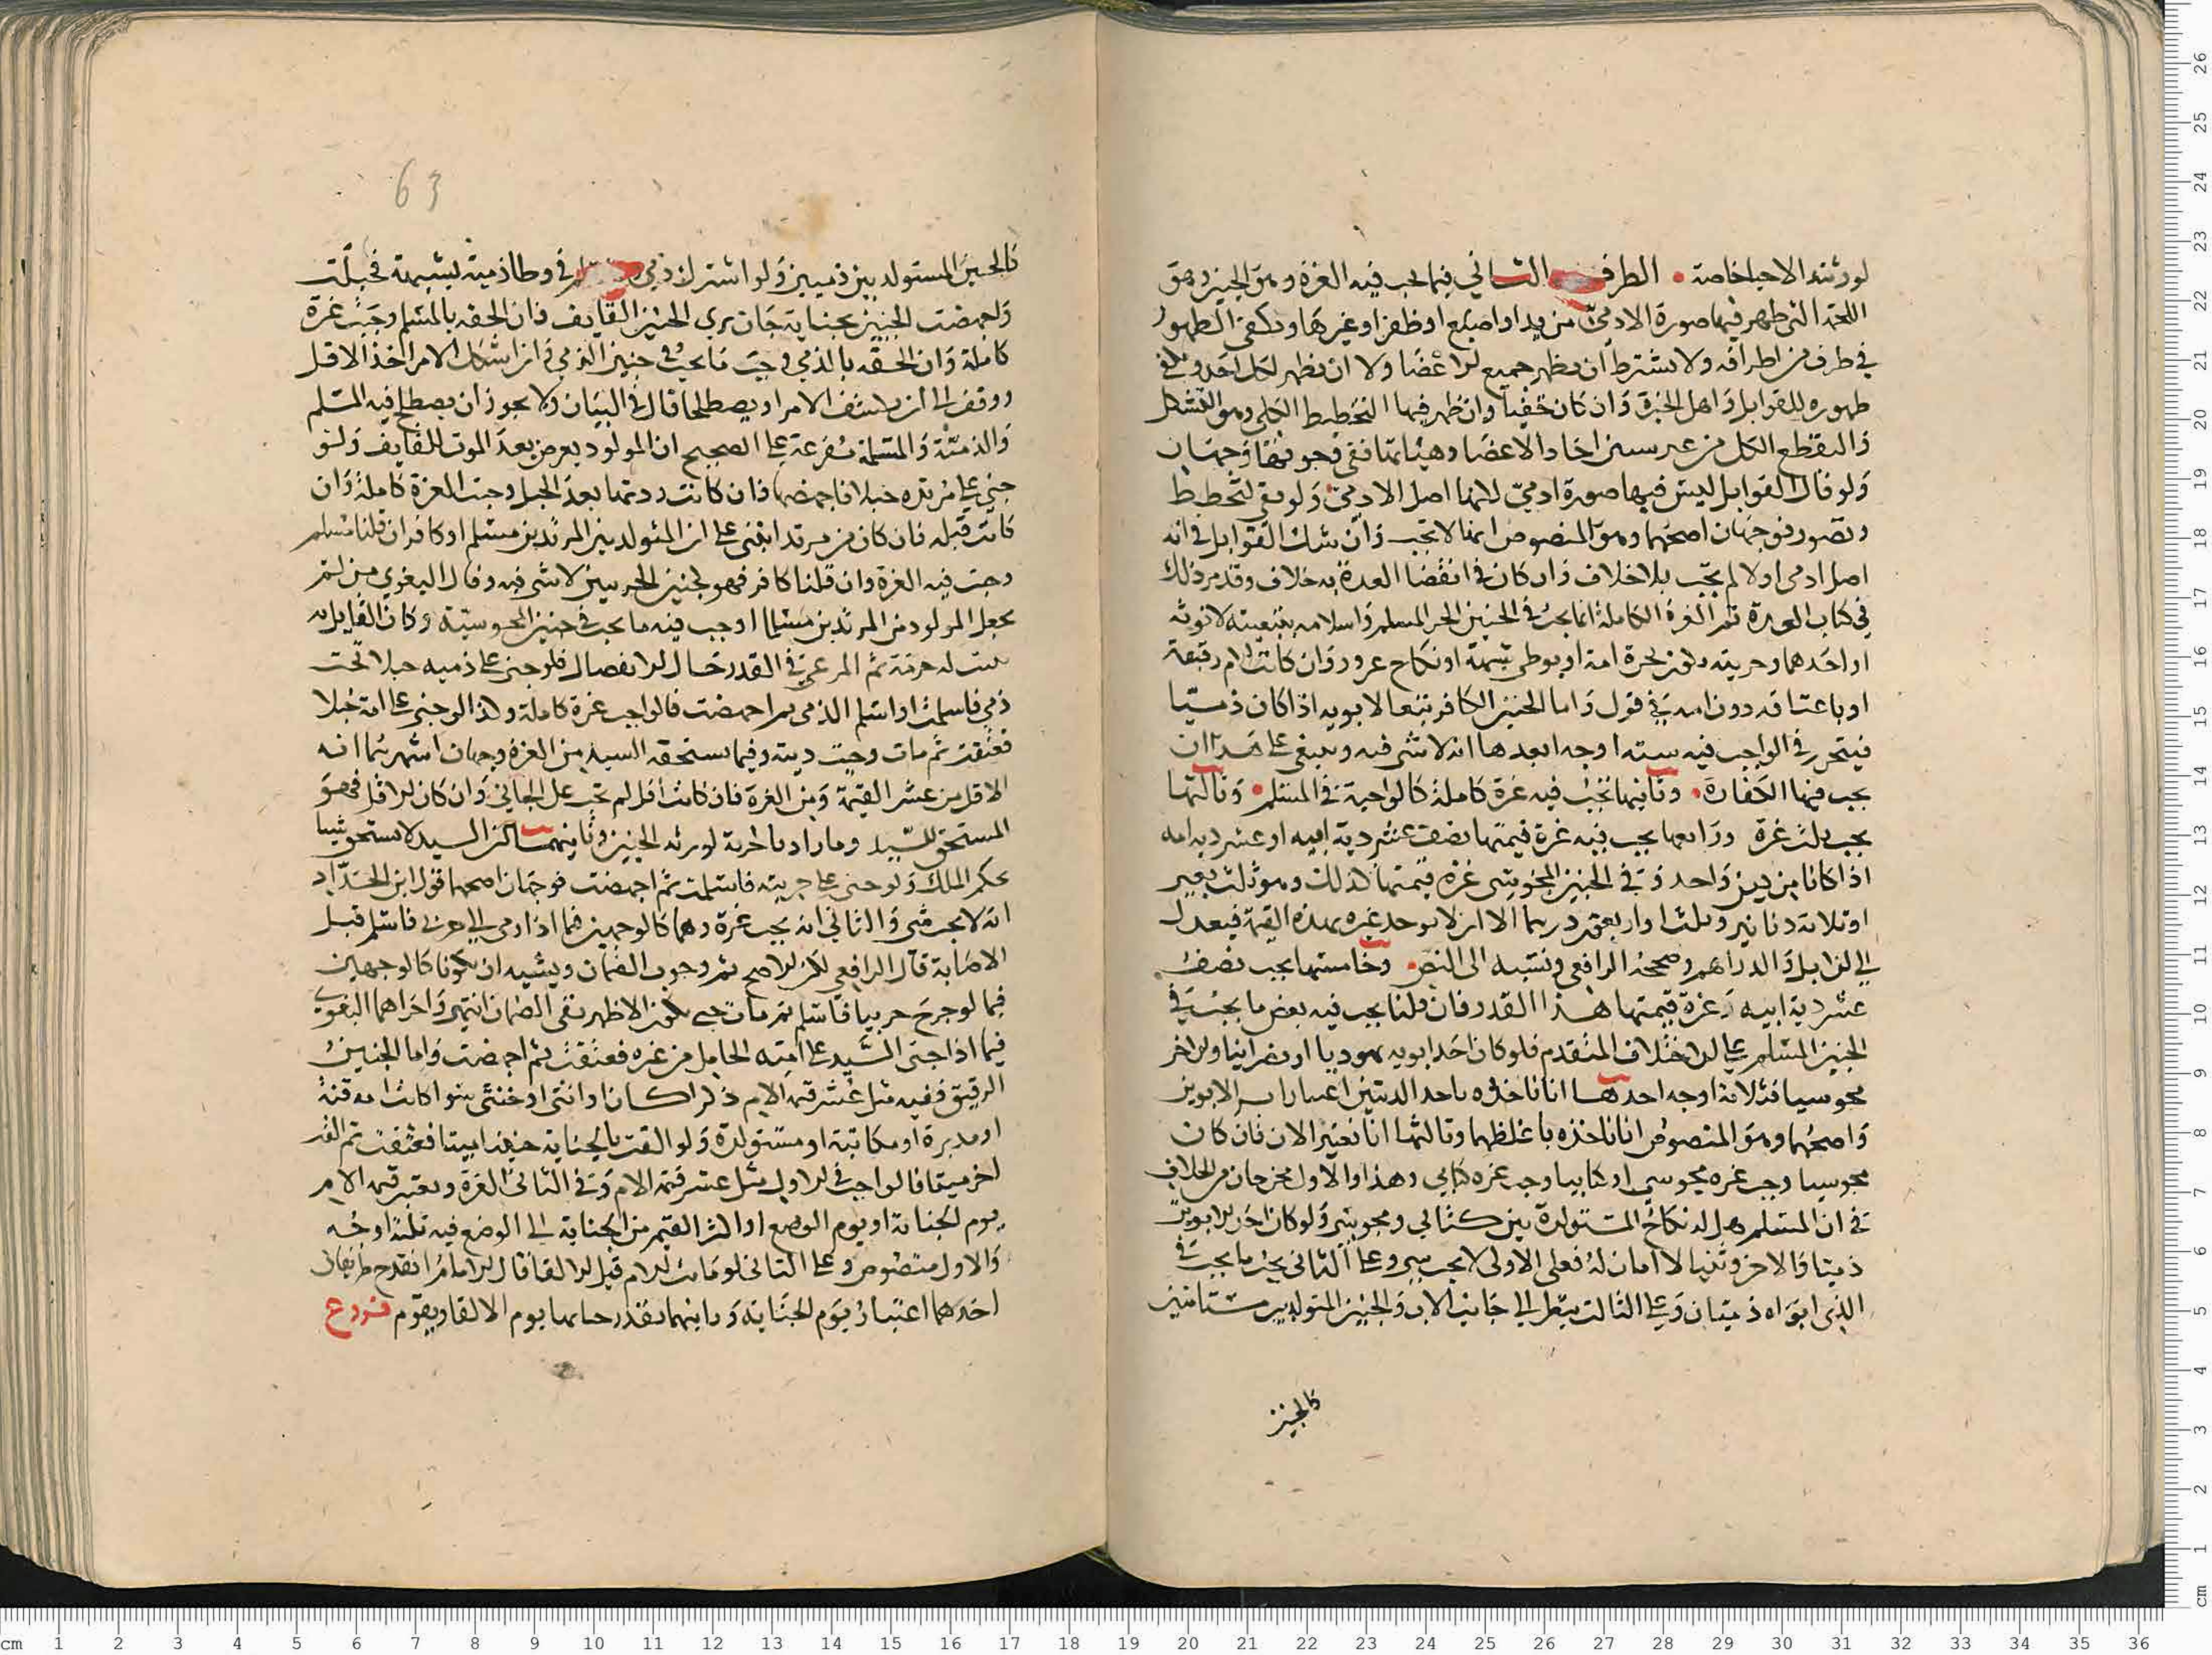 لورثته الاحيا خاصة • الطرف الثاني فيما يجب فيه الغرة وهو الجنين وهو
اللحمة التي ظهر فيها صورة الادمي من يد او اصبع او ظفر او غيرها ويكفي الظهور
في طرف من اطرافه ولا يشترط ان يظهر جميع الاعضا ولا ان يظهر لكل احد ويكفي
ظهوره للقوابل واهل الخبرة وان كان خفيا وان ظهر فيها التخطيط الكلي وهو التشكل
والتقطع الكل من غير احاد الاعضا وهيئاتها ففي وجوبها وجهان
ولو قال القوابل ليس فيها صورة ادمي لكنها اصل الادمي ولو بقي لتخطط
وتصور فوجهان اصحهما وهو المنصوص انها لا تجب وان شك القوابل في انه
اصل ادمي او لا لم يجب بلا خلاف وان كان في انقضا العدة به خلاف وقد مر ذلك
في كتاب العدة ثم الغرة الكاملة انما تجب في الجنين الحر المسلم واسلامه بتبعيته لابويه
او احدهما وحريته بكون حرة امه او بوطي شبهة او نكاح غرور وان كانت الام رقيقة
او باعتاقه دون امه في قول واما الجنين الكافر تبعا لابويه اذا كان ذميا
فيتحرر في الواجب فيه ستة اوجه ابعدها انه لا شي فيه وينبغي على هذا ان
يجب فيها الكفارة • وثانيها تجب فيه غرة كاملة كالواجبة في المسلم • وثالثها
يجب ثلث غرة ورابعها يجب فيه غرة قيمتها نصف عشر دية ابيه او عشر دية امه
اذا كانا من دين واحد وفي الجنين المجوسي غرة قيمتها كذلك وهو ثلث بعير
او ثلاثة دنانير وثلث او اربعون درهما الا ان لا يوجد غره بهذه القيمة فيعدل
الى الابل والدراهم وصححه الرافعي ونسبه الى النص • وخامسها يجب نصف
عشر دية ابيه وغرة قيمتها هذا القدر فان قلنا يجب فيه بعض ما يجب في
الجنين المسلم على الاختلاف المتقدم فلو كان احد ابويه يهوديا او نصرانيا والاخر
مجوسيا فثلاثة اوجه احدها انا ناخذه باحد الديتين اعتبارا بالابوين
واصحها وهو المنصوص انا ناخذه باغلظهما وثالثها انا نعتبر الاب فان كان
مجوسيا وجب غره مجوسي او كتابيا وجب غره كتابي وهذا والاول مخرجان من الخلاف
في ان المسلم هل له نكاح المتولدة بين كتابي ومجوسي ولو كان احد الابوين
ذميا والاخر وثنيا لا امان له فعلى الاولى لا يجب شي وعلى الثاني يجب ما يجب في
الذي ابواه ذميان وعلى الثالث ينظر الى جانب الاب والجنين المتولد بين مستامنين
كالجنين
63
كالجنين المستولد بين ذميين ولو اشترك ذمي ومسلم في وطا ذمية بشبهة فحبلت
واجهضت الجنين بجناية جان يري الجنين القايف فان الحقه بالمسلم وجبت غرة
كاملة وان الحقه بالذمي وجب ما يجب في جنين الذمي فان اشكل الامر اخذ الاقل
ووقف الى ان ينكشف الامر او يصطلحا قال في البيان ولا يجوز ان يصطلح فيه المسلم
والذمية والمسلة مفرعة على الصحيح ان المولود يعرض بعد الموت للقايف ولو
جنى على مرتدة حبلا فاجهضها فان كانت ردتها بعد الحبل وجبت الغرة كاملة وان
كانت قبله فان كان من مرتد ابتني على ان المتولد بين المرتدين مسلم او كافر ان قلنا مسلم
وجبت فيه الغرة وان قلنا كافر فهو كجنين الحربيين لا شي فيه وقال البغوي من لم
يجعل المولود من المرتدين مسلما اوجب فيه ما يجب في جنين المجوسية وكان القايل به
يثبت له حرمة ثم المرعي في القدر حال الانفصال فلو جنى على ذميه حبلا تحت
ذمي فاسلمت او اسلم الذمي ثم اجهضت فالواجب غرة كاملة وكذا لو جنى على امة حبلا
فعتقت ثم مات وجبت ديته وفيما يستحقه السيد من الغرة وجهان اشهرهما انه
الاقل من عشر القيمة ومن الغرة فان كانت اقل لم تجب على الجاني وان كان الاقل فهو
المستحق للسيد وما زاد بالحرية لورثه الجنين وثانيهما ان السيد لا يستحق شيئا
بحكم الملك ولو جنى على حربية فاسلمت ثم اجهضت فوجهان اصحهما قول ابن الحداد
انه لا يجب شي والثاني انه يجب غرة وهما كالوجهين فيما اذا رمى الى حربي فاسلم قبل
الاصابة قال الرافعي لكن الاصح ثم وجوب الضمان ويشبه ان يكونا كالوجهين
فيما لو جرح حربيا فاسلم ثم مات حتى يكون الاظهر نفى الضمان انتهى واجراهما البغوي
فيما اذا جنى السيد على امته الحامل من غيره فعتقت ثم اجهضت واما الجنين
الرقيق ففيه مثل عشر قيمه الام ذكرا كان او انثى او خنثى سوا كانت امه قنة
او مدبرة او مكاتبة او مستولدة ولو القت بالجناية جنينا ميتا فعتقت ثم القت
اخر ميتا فالواجب في الاول مثل عشر قيمة الام وفي الثاني الغرة ويعتبر قيمة الام
يوم الجناية او يوم الوضع او اكثر القيم من الجناية الى الوضع فيه ثلثة اوجه
والاول منصوص وعلى الثاني لو ماتت الام قبل الالقا قال الامام انقدح طريقان
احدهما اعتبار يوم الجناية وثانيهما تقدير حياتها يوم الالقا ويقوم فروع